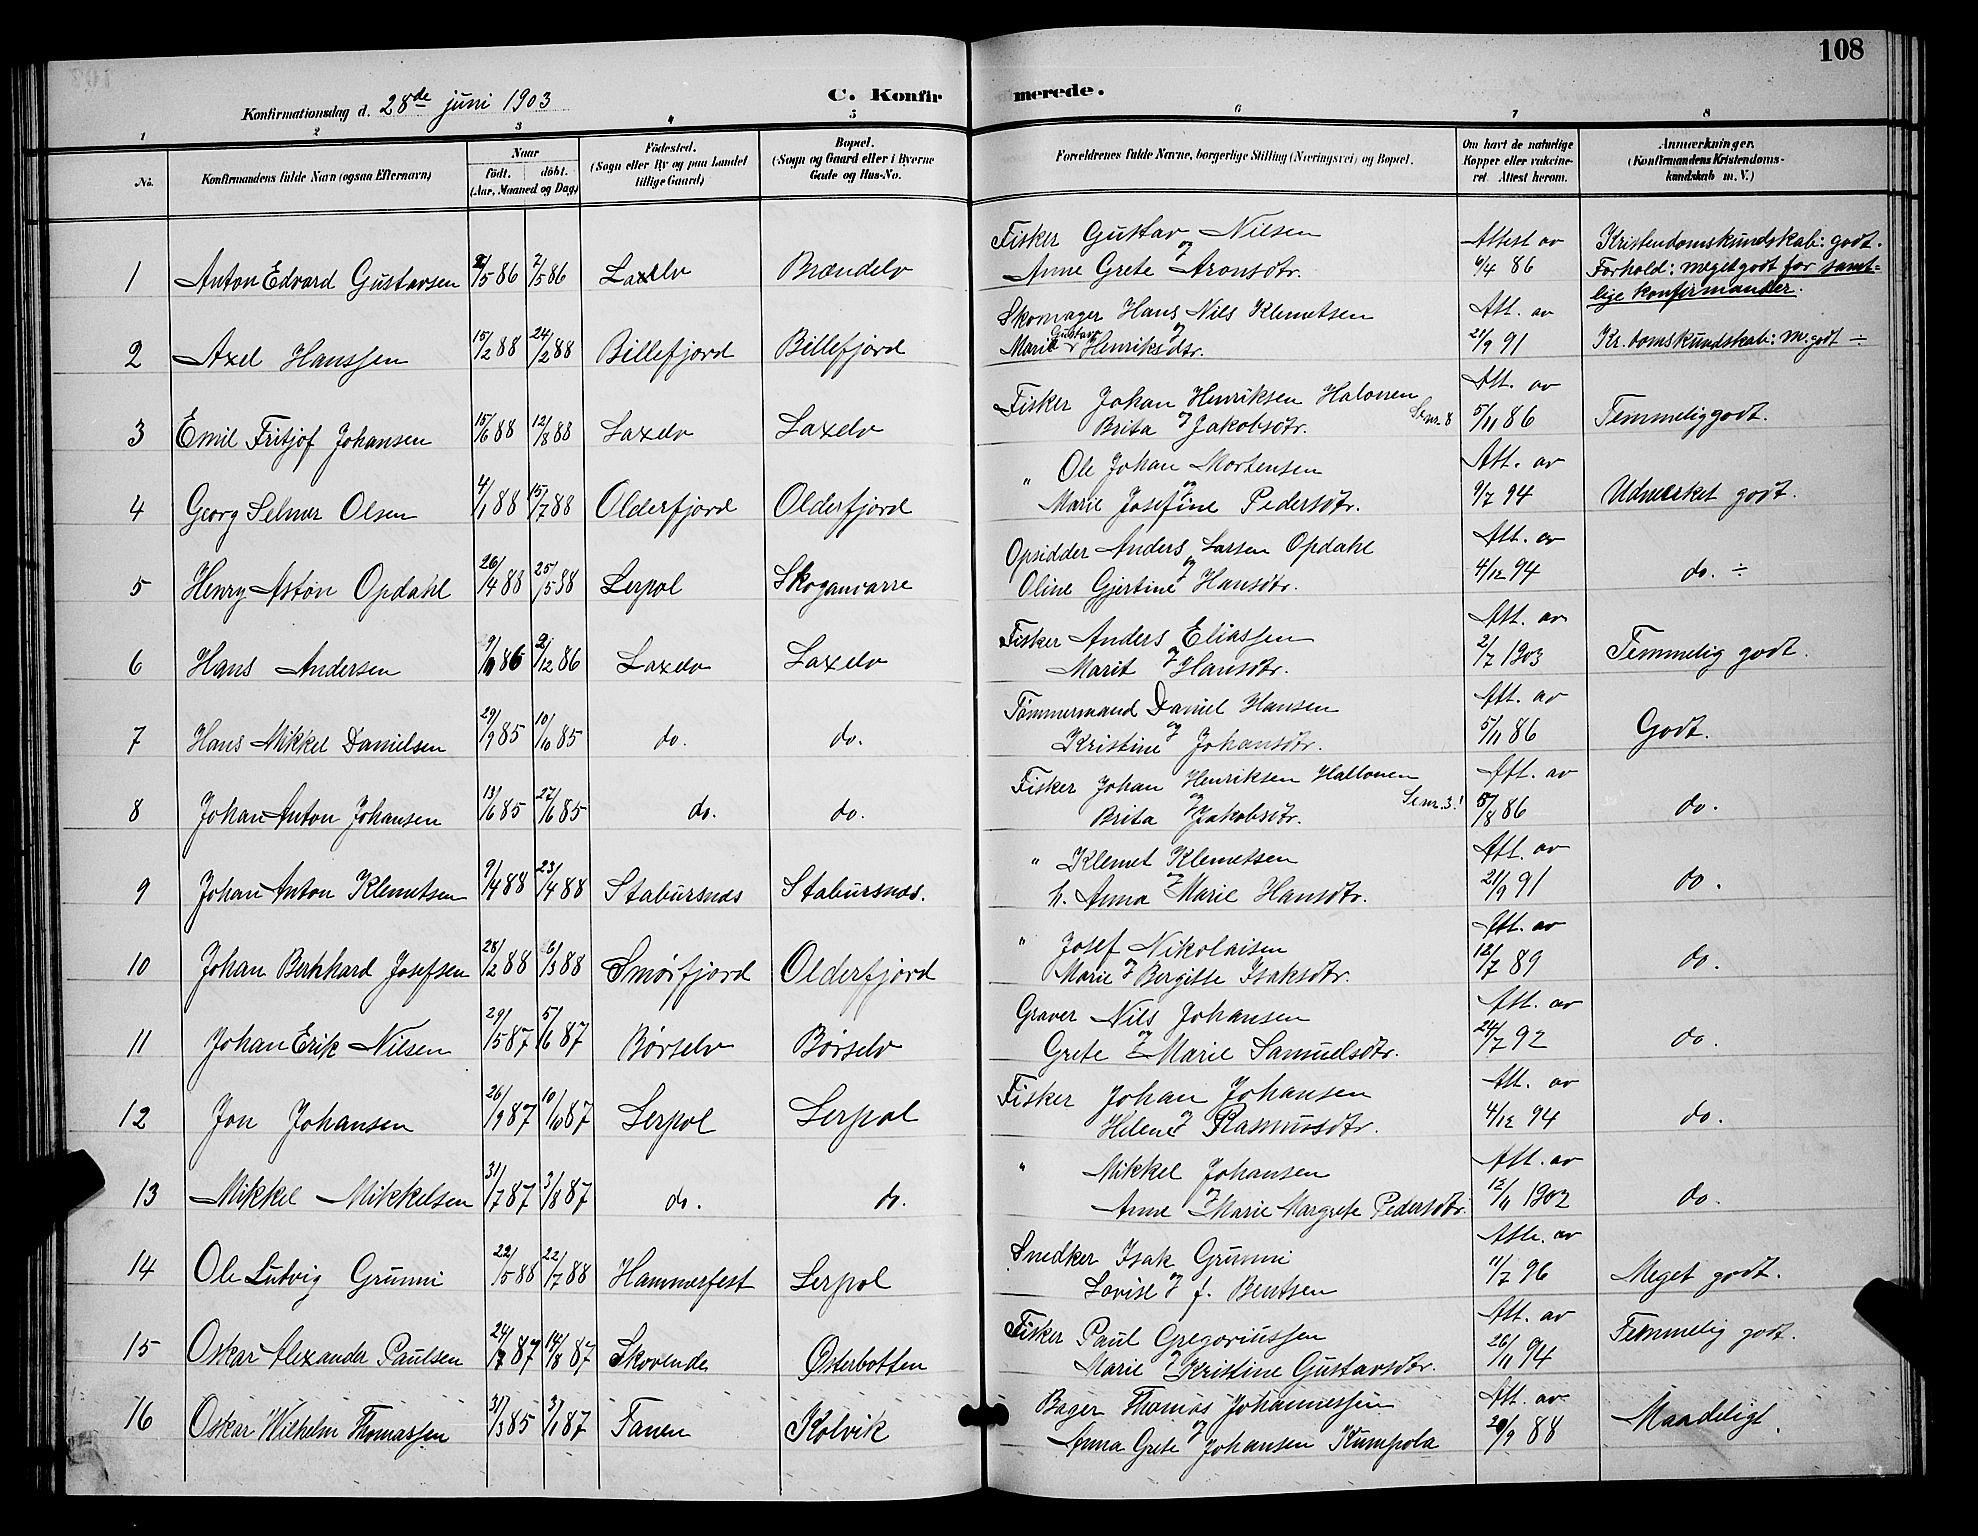 108
Konfirmationsdag d. 28de juni 1903
C. Konfirmerede.
1 2 3 4 5 6 7 8
No. | Konfirmandens fulde Navn (ogsaa Efternavn) | Naar født. døbt. (Aar, Maaned og Dag) | Fødested. (Sogn eller By og paa Landet tillige Gaard) | Bopæl. (Sogn og Gaard eller i Byerne Gade og Hus-No. | Forældrenes fulde Navne, borgerlige Stilling (Næringsvei) og Bopæl. | Om havt de naturlige Kopper eller vaccineret. Attest herom. | Anmærkninger. (Konfirmandens Kristendomskundskab m. V.)
Fisker Gustav Nilsen | Attest av | Kristendomskundskab: godt.
1 | Anton Edvard Gustavsen | 2/5 86 | 7/5 86 | Laxelv | Brændelv | og Anne Grete Aronsdtr. | 6/4 86 | Forhold: meget godt for samtlige konfirmander.
Skomager Hans Nils Klemetsen | Att. av
2 | Axel Hanssen | 15/2 88 | 24/2 88 | Billefjord | Billefjord | og Marit Gustava Henriksdtr. | 21/9 91 | Kr.domskundskab: m. godt ÷
Fisker Johan Henriksen Halonen | Att. av
3 | Emil Fritjof Johansen | 15/6 88 | 12/8 88 | Laxelv | Laxelv | Brita og Jakobsdtr. Se nr. 8 | 5/11 86 | Temmelig godt.
" Ole Johan Mortensen | Att. av
4 | Georg Selmer Olsen | 4/1 88 | 15/7 88 | Olderfjord | Olderfjord | og Marie Josefine Pedersdtr. | 9/7 94 | Udmerket godt.
Opsidder Anders Larsen Opdahl | Att. av
5 | Henry Aston Opdahl | 26/4 88 | 25/5 88 | Lerpol | Skoganvarre | og Oline Gjertine Hansdtr. | 4/12 94 | do. ÷
Fisker Anders Eliassen | Att. av
6 | Hans Andersen | Laxelv | Laxelv | Marit og Hansdtr. | 2/7 1903 | Temmelig godt.
Tømmermand Daniel Hansen | Att. av
7 | Hans Mikkel Danielsen | 29/9 85 | 10/10 85 | do. | do. | Kristine og Johansdtr. | 5/11 86 | Godt.
Fisker Johan Henriksen Hallonen | Att. av
8 | Johan Anton Johansen | 13/6 85 | 27/6 85 | do. | do. | Brita og Jakobsdtr. Se nr. 3! | 5/8 86 | do.
" Klemet Klemetsen | Att. av
9 | Johan Anton Klemetsen | 9/4 88 | 23/4 88 | Stabursnæs | Stabursnæs. | og h. Anna Marie Hansdtr. | 21/9 91 | do.
" Josef Nikolaisen | Att. av
10 | Johan Bernhard Josefsen | 28/2 88 | 6/3 88 | Smørfjord | Olderfjord | Marie og Bergitte Isaksdtr. | 12/7 89 | do.
Graver Nils Johansen | Att. av
11 | Johan Erik Nilsen | 29/5 87 | 5/6 87 | Børselv | Børselv | Grete og Marie Samuelsdtr. | 24/7 92 | do.
Fisker Johan Johansen | Att. av
12 | Jon Johansen | 26/9 87 | 10/10 87 | Lerpol | Lerpol | Helene og Rasmusdtr. | 4/12 94 | do.
" Mikkel Johansen | Att. av
13 | Mikkel Mikkelsen | 31/7 87 | 3/8 87 | do. | do. | Anne og Marie Margrete Pedersdtr. | 12/11 1902 | do.
Snedker Isak Grunni | Atte. av
14 | Ole Lutvig Grunni | 22/5 88 | 22/7 88 | Hammerfest | Lerpol | Lovise og f. Bentsen | 11/7 96 | Meget godt.
Fisker Paul Gregoriussen | Att. av
15 | Oskar Alexander Paulsen | 24/7 87 | 14/8 87 | Skovende | Østerbotten | Marie og Kristine Gustavsdtr. | 26/11 94 | Temmelig godt.
Bager Thomas Johannessen | Att. av
16 | Oskar Wilhelm Thomassen | 31/3 85 | 3/1 87 | Tanen | Kolvik | Anna Grete og Johansen Kumpola | 20/9 88 | Maadeligt.